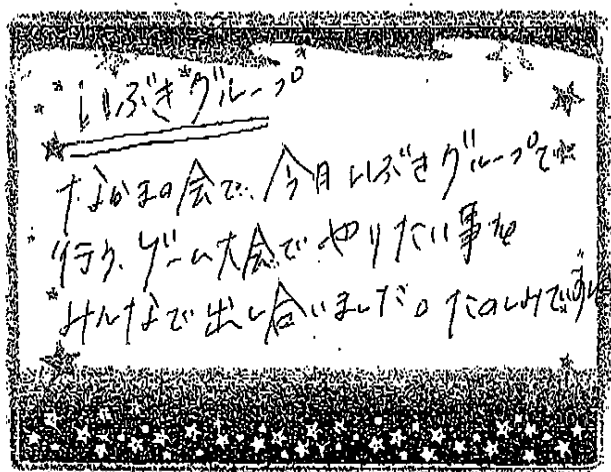 いぶきグループ
なかまの会で、今月いぶきグループで
行う、ゲーム大会でやりたい事を
みんなで出し合いました。たのしみです。